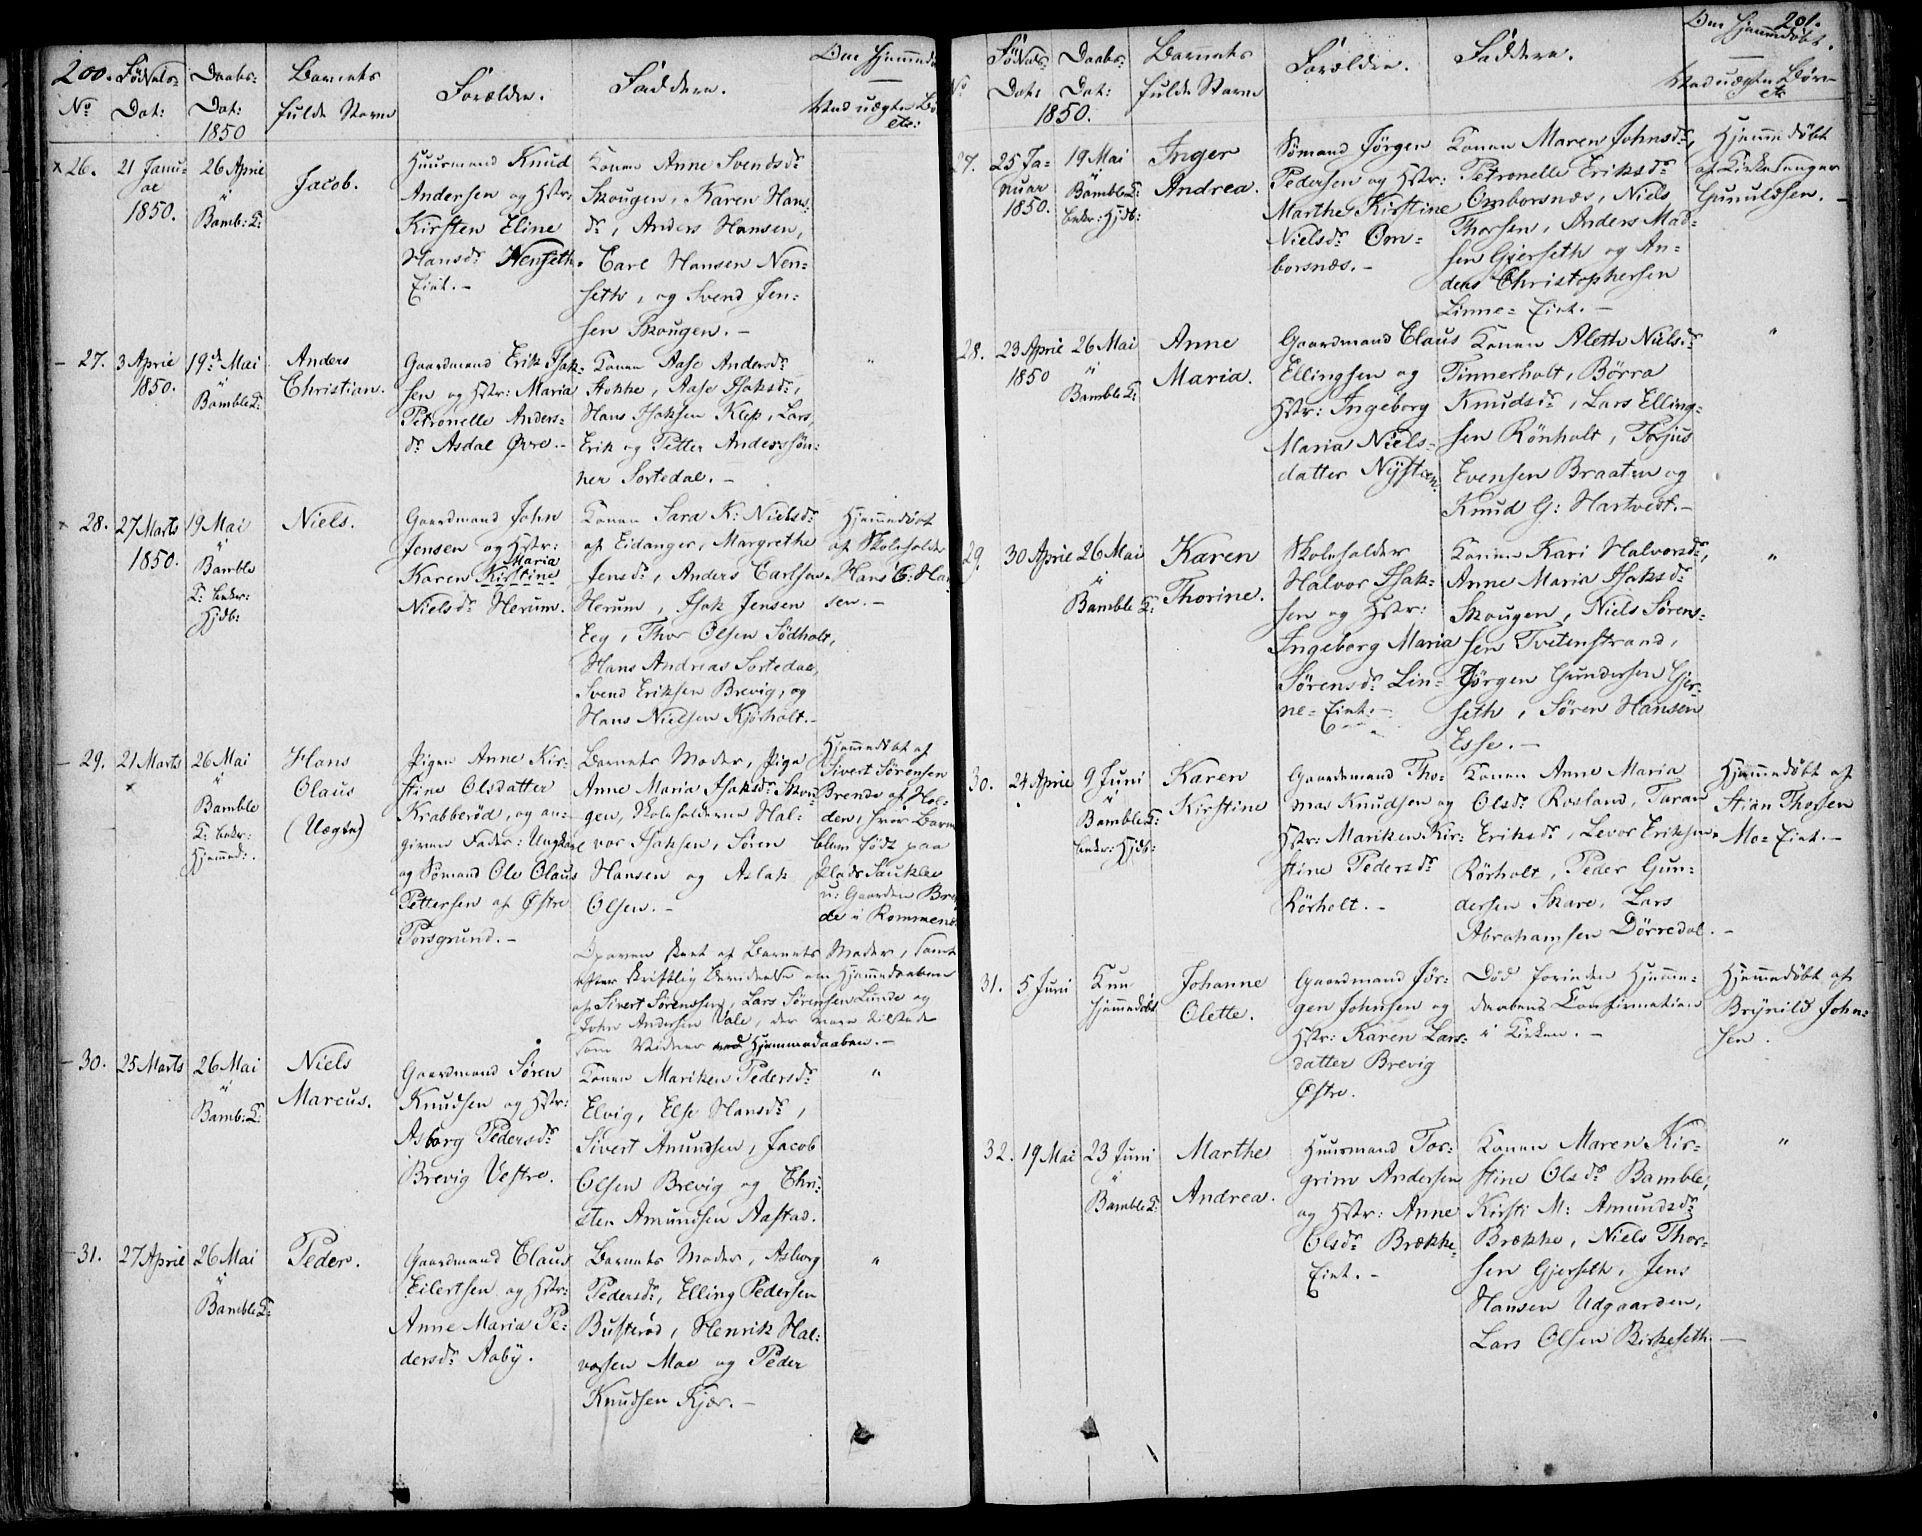 200.
Födsels- Daabs- Barnets Forældre. Faddere. Om Hjemmedøbt
No Dat: Dat: fulde Navn hvad uægte Børn
1850 etc:
26. 21 Januar 1850. 26 April i Bamb: K:
Jacob.
Huusmand Knud
Andersen og Hstr:
Kirsten Eline
Hansdr Nenseth
Eiet.-
Konen Anne Svendsdr
Skougen, Karen Hans-
dr, Anders Hansen,
Carl Hansen Nen-
seth, og Svend Jen-
sen Skougen.-
27. 3 April 1850. 19de Mai i Bamble K:
Anders
Christian.
Gaardmand Erik Isak-
sen og Hstr: Maria
Petronelle Anders-
dr Asdal Øvre.-
Konen Aase Andersdr
Hokke, Aase Isaksdr,
Hans Isaksen Klep, Lars,
Erik og Petter Anderssøn-
ner Sortedal.-
"
28. 27 Marts 1850. 19 Mai i Bamble K: bekr: Hjdb:
Niels.
Gaardmand John
Jensen og Hstr:
Maria
Karen Kirstine
Nielsdr Herum.
Konen Sara K: Nielsdr
af Eidanger, Margrethe
Jensdr, Anders Carlsen
Herum, Isak Jensen
Eeg, Thor Olsen Södholt,
Hans Andreas Sortedal,
Svend Eriksen Brevig, og
Hans Nielsen Kjørholt.-
Hjemmedøbt
af Skoleholder
Hans C: Han-
sen.-
29. 21 Marts 26 Mai i Bamble K: bekr: Hjemmed:
Hans
Olaus
(Uægte)
Pigen Anne Kir-
stine Olsdatter
Krabberød, og an-
given Fader: Ungkarl
og Sömand Ole Olaus
Pettersen af Østre
Porsgrund.-
Barnets Moder, Pige
Anne Maria Isaksdr Skou-
gen, Skoleholderne Hal-
vor Isaksen, Søren
Hansen og Aslak
Olsen.-
Hjemmedöbt af
Sivert Sørensen
Brende af Hol-
den, hvor Barnet
blev födt paa
Plads Saukleo
u: Gaarden Bren-
de i Rommenæs
Daaben skeet af Barnets Moder, samt
efter skriftlig Beretning om Hjemmedaaben
af Sivert Sørensen, Lars Sørensen Lunde og
John Andersen Vale, der vare tilstede
som Vidner ved Hjemmedaaben.-
30. 25 Marts 26 Mai i Bamb: K:
Niels
Marcus.
Gaardmand Søren
Knudsen og Hstr:
Asborg Pedersdr
Brevig Vestre.
Konen Mariken Pedersdr
Elvig, Else Hansdr,
Sivert Amundsen, Jacob
Olsen Brevig og Chri-
sten Amundsen Aastad.
"
31. 27 April 26 Mai i Bamble K:
Peder.
Gaardmand Claus
Eilertsen og Hstr:
Anne Maria Pe-
dersdr Aaby.
Barnets Moder, Asborg
Pedersdr, Elling Pedersen
Busterød, Henrik Hal-
vorsen Moe og Peder
Knudsen Kjær.-
"
201.
No Födsels- Daabs- Barnets Forældre. Faddere. Om Hjemmedøbt.
Dat: Dat: fulde Navn hvad uægte Børn
1850. etc
27. 25 Januar 1850. 19 Mai i Bamble K: bekr: Hjdb:
Inger
Andrea.
Sömand Jörgen
Pedersen og Hstr:
Marthe Kirstine
Nielsdr Om-
borsnæs.-
Konen Maren Johnsdr,
Petronelle Eriksdr
Omborsnæs, Niels
Thorsen, Anders Mad-
sen Gjerseth og An-
ders Christophersen
Linne-Eiet.-
Hjemmedöbt
af Kirkesanger
Gunuldsen.-
28. 23 April 1850 26 Mai i Bamble K:
Anne
Maria.
Gaardmand Claus
Ellingsen og
Hstr: Ingeborg
Maria Niels-
datter Nystuen.
Konen Aleth Nielsdr
Tinnerholt, Börra
Knudsdr, Lars Elling-
sen Rönholt, Torjus
Evensen Braaten og
Knud G: Hartvedt.-
"
29. 30 April 26 Mai i Bamble K:
Karen
Thorine.
Skoleholder
Halvor Isak-
sen og Hstr:
Ingeborg Maria
Sørensdr Lin-
ne-Eiet.-
Konen Kari Halvorsdr,
Anne Maria Isaksdr
Skougen, Niels Sørens-
sen Tvetenstrand,
Jörgen Gundersen Gjer-
seth, Søren Hansen
Esse.-
"
30. 24 April 9 Juni i Bamble K: bekr: Hjdb:
Karen
Kirstine
Gaardmand Tho-
mas Knudsen og
Hstr: Mariken Kir-
stine Pedersdr
Rörholt.-
Konen Anne Maria
Olsdr Rosland, Taran
Eriksdr, Levor Eriksen
Rörholt, Peder Gun-
dersen Skare, Lars
Abrahamsen Dörredal.-
Hjemmedöbt af
Stian Thorsen
Mo-Eiet.-
31. 5 Juni Kun hjemmedöbt
Johanne
Olette.
Gaardmand Jör-
gen Johnsen og
Hstr: Karen Lars-
datter Brevig
Østre.
Död forinden Hjemme-
daabens Confirmation
i Kirken.-
Hjemmedöbt af
Brynild John-
sen.
32. 19 Mai 23 Juni i Bamble K:
Marthe
Andrea.
Huusmand Tor-
grim Andersen
og Hstr: Anne
Olsdr Brække-
Eiet.-
Konen Maren Kir-
stine Olsdr Bamble,
Kirsti M: Amundsdr
Brække, Niels Thor-
sen Gjerseth, Jens
Hansen Udgaarden,
Lars Olsen Birkeseth.-
"